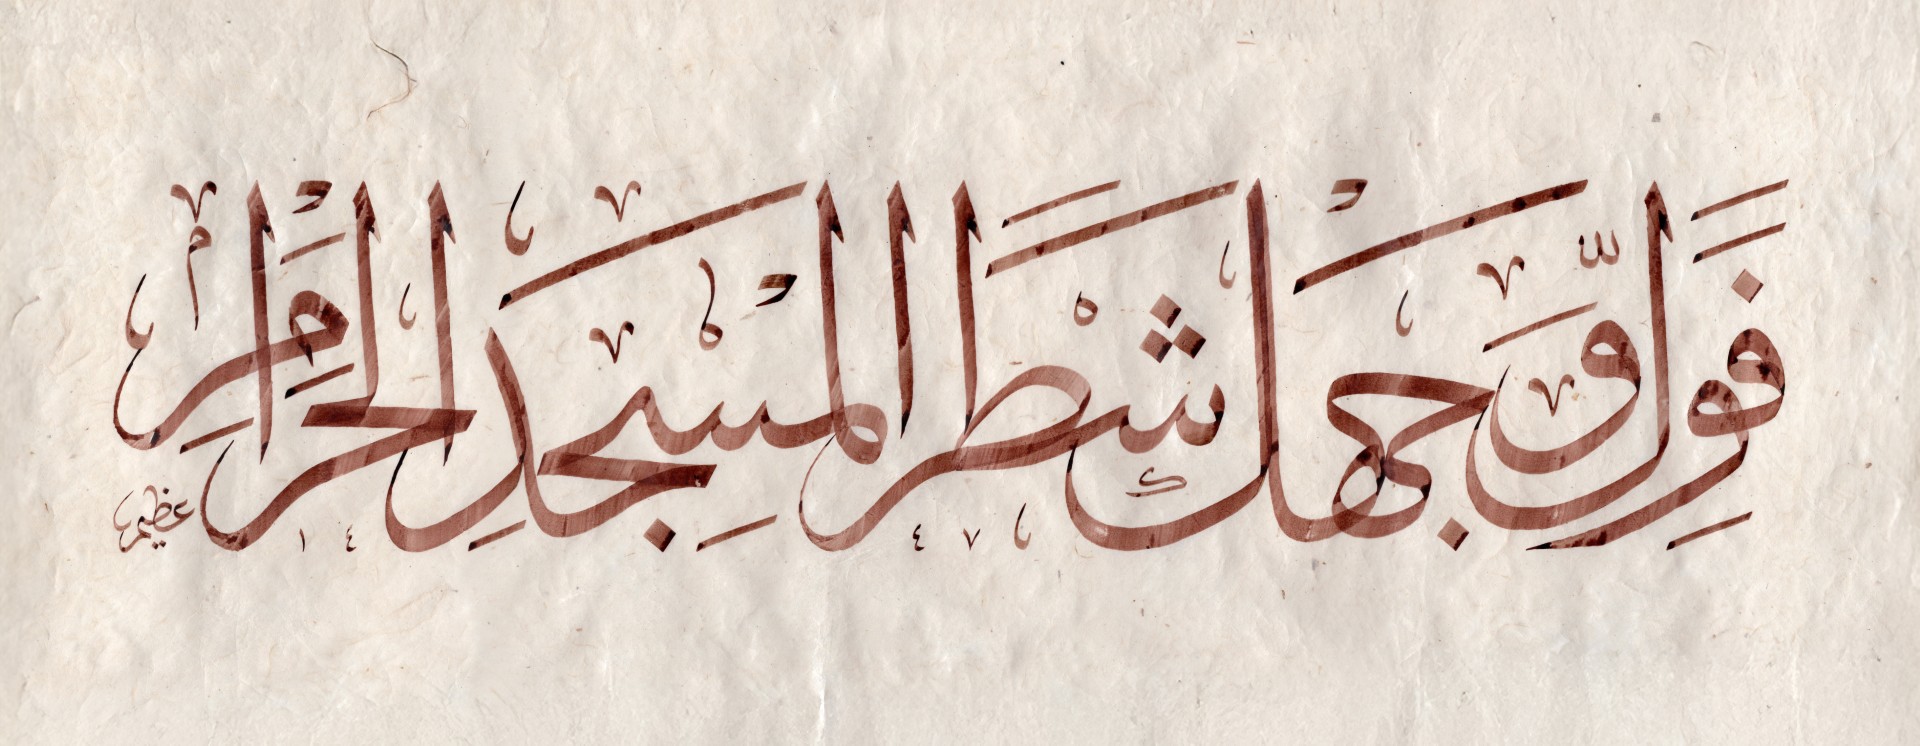 فَوَلِّ وَجْهَكَ شَطْرَ الْمَسْجِدِ الْحَرَامِ
عظيم ١٤ ٤٧